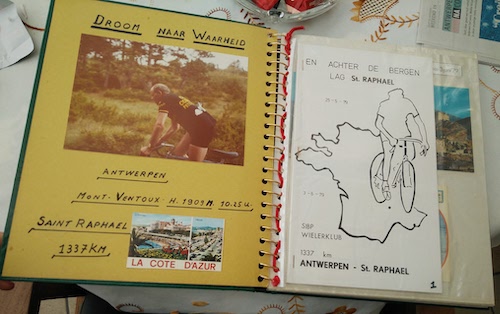 DROOM NAAR WAARHEID
ANTWERPEN
MONT-VONTOUX H. 1909M 10.25U.
SAINT RAPHAEL
1337 KM
LA COTE D'AZUR
EN ACHTER DE BERGEN
LAG ST. RAPHAEL
SBP
WIELERKLUB
1337 km
ANTWERPEN - St. RAPHAEL
1